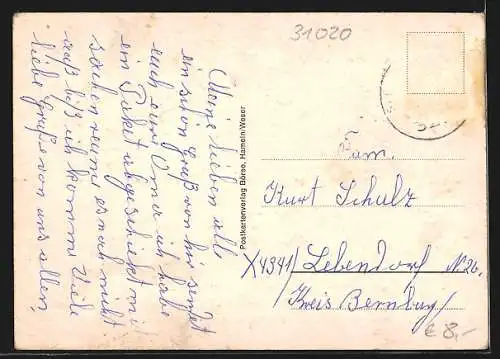 31020
Meine lieben alle
ein schön Gruß von hir sendet
euch eure Oma ich habe
ein Paket abgeschickt mi
sachen reume es noch nicht
auß biß ich komme Viele
liebe Grüße von uns allen.
Postkartenverlag Börse, Hameln/Weser
Fam.
Kurt Schulz
X4341/ Lebendorf N 26.
Kreis Bernburg/
€ 8,-